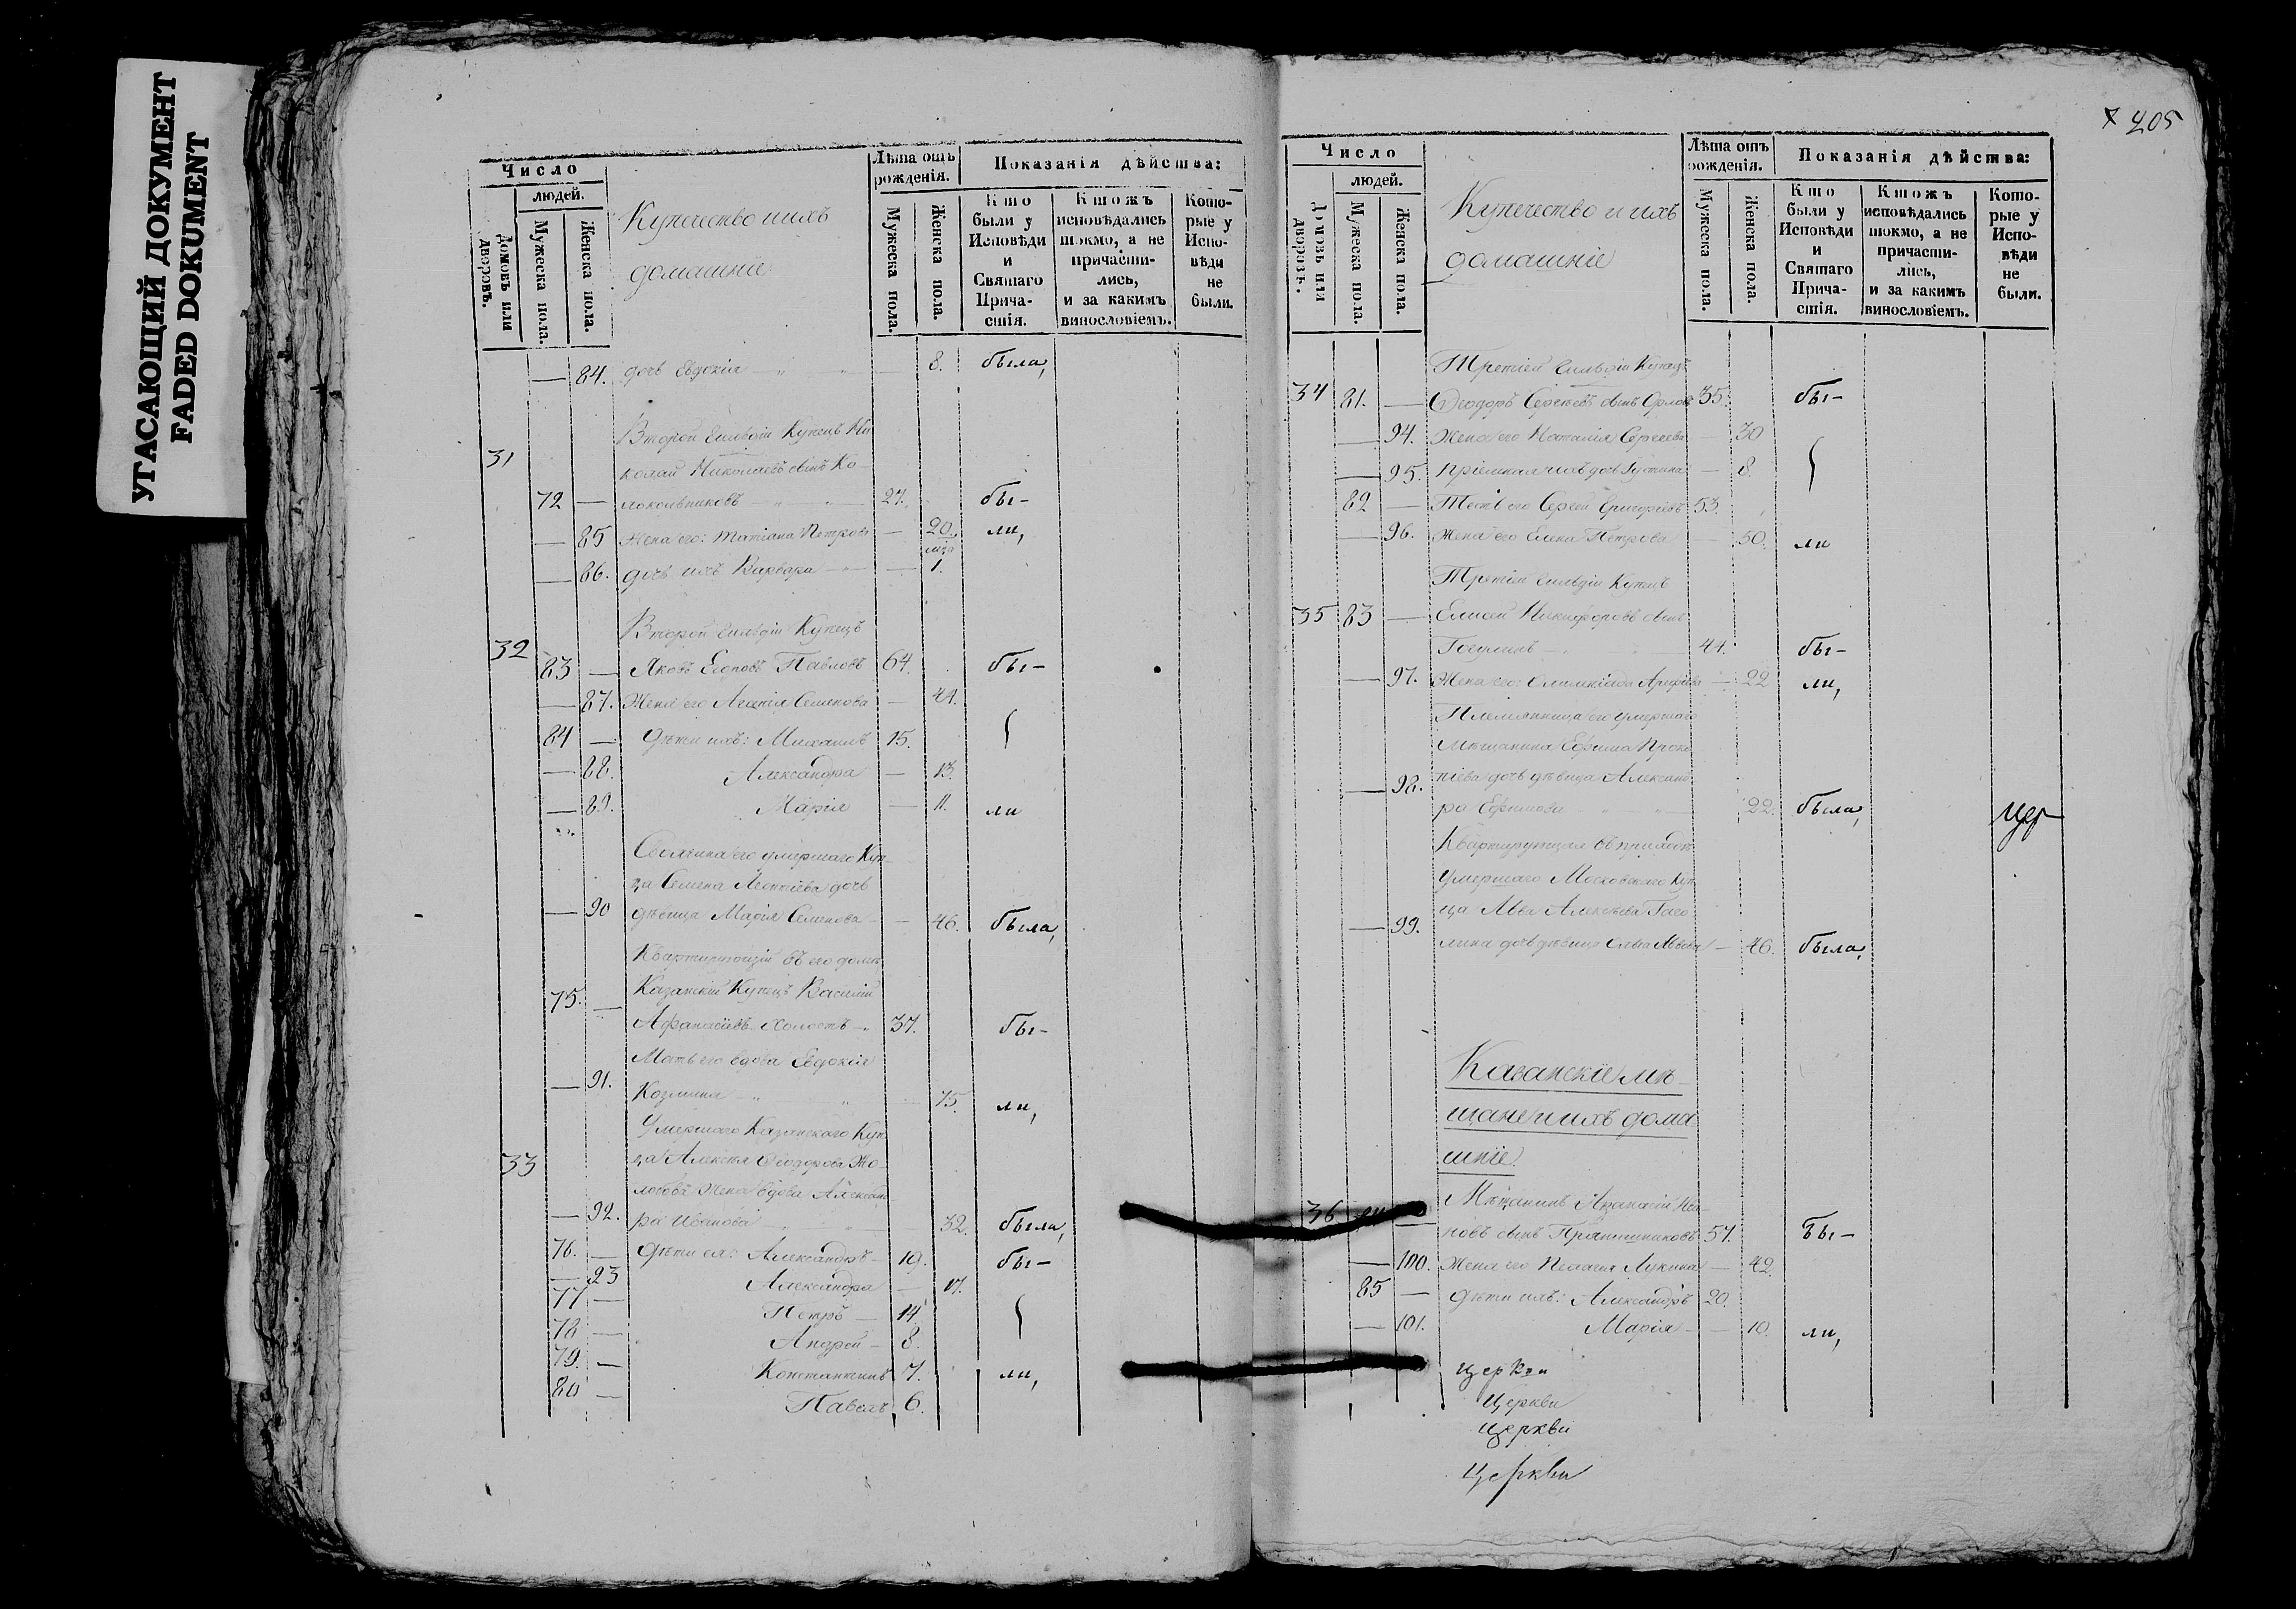 УГАСАЮЩИЙ ДОКУМЕНТ
FADED DOKUMENT
Число
людей.
Домовъ или дворовъ.
Мужеска пола.
Женска пола.
Купечество и ихъ
домашніе
Лѣта отъ рожденія.
Мужеска пола.
Женска пола.
Показанія дѣйства:
Кто были у Исповѣди и Святаго Прича-стія.
Ктожъ исповѣдались токмо, а не причасти-лись, и за какимъ винословіемъ.
Кото-рые у Испо-вѣди не были.
— 84. дочь Евдокія — 8. была,
Второй гильдіи Купецъ Ни
31 колай Николаевъ сынъ Ко-
72 — локольниковъ 27. бы-
— 85 Жена его: Татіана Петрова — 20. ли,
— 86. дочь ихъ Варвара — 1.
Второй гильдіи Купецъ
32 83 — Яковъ Егоровъ Павловъ 64. бы-
— 87. Жена его Семенова — 41.
84 — Дѣти ихъ: Михаилъ 15.
— 88. Александра — 13.
— 89. Марія — 11. ли
его умершаго Куп-
ца Семена Леонтіева дочь
— 90 дѣвица Марія Семенова — 46. была,
Квартирующій въ его домѣ
75. — Казанскій Купецъ Василій
Афанасьевъ Холостъ 37. бы-
Мать его вдова Евдокія
— 91. Козмина 75. ли,
Умершаго Казанскаго Куп
33 ца Алексѣя Ѳеодорова
жена вдова Александ
— 92. ра Иванова 32. была,
76. — Дѣти ея: Александръ 19. бы-
— 23 Александра — 17.
77 — Петръ — 14.
78 — Андрей — 8.
79. — Константинъ 7. ли,
80 — Павелъ 6.
405
Число
людей.
Домовъ или дворовъ.
Мужеска пола.
Женска пола.
Купечество и ихъ
домашніе
Лѣта отъ рожденія.
Мужеска пола.
Женска пола.
Показанія дѣйства:
Кто были у Исповѣди и Святаго Прича-стія.
Ктожъ исповѣдались токмо, а не причасти-лись, и за какимъ винословіемъ.
Кото-рые у Испо-вѣди не были.
Третіей гильдіи Купецъ
34 81. — Ѳеодоръ Сергѣевъ сынъ Орловъ 35. бы-
— 94. Жена его Наталія Сергеева — 30
— 95. ихъ дочь Іустина — 8.
82 — Тесть его Сергей Григорьевъ 53.
— 96. Жена его Елена Петрова — 50. ли
Третіей гильдіи Купецъ
35 83 — Елисей Никифоровъ сынъ
44. бы-
— 97. Жена его: Олимпіада — 22 ли,
Племянница его умершаго
мѣщанина Ефима Проко
— 98. піева дочь дѣвица Александ
ра Ефимова 22. была, цер
Квартирующая
умершаго Московскаго Куп
— 99. ца Льва Алексѣева
лина дочь дѣвица Ольга Львова — 46. была,
Казанскіе мѣ-
щане и ихъ дома
шніе.
36 — Мѣщанинъ Афанасій Ива-
новъ сынъ Прянишниковъ 57. Бы-
— 100. Жена его Пелагея Лукина — 42.
85 — Дѣти ихъ: Александръ 20.
— 101. Марія — 10. ли,
церкви
Церкви
церкви
церкви